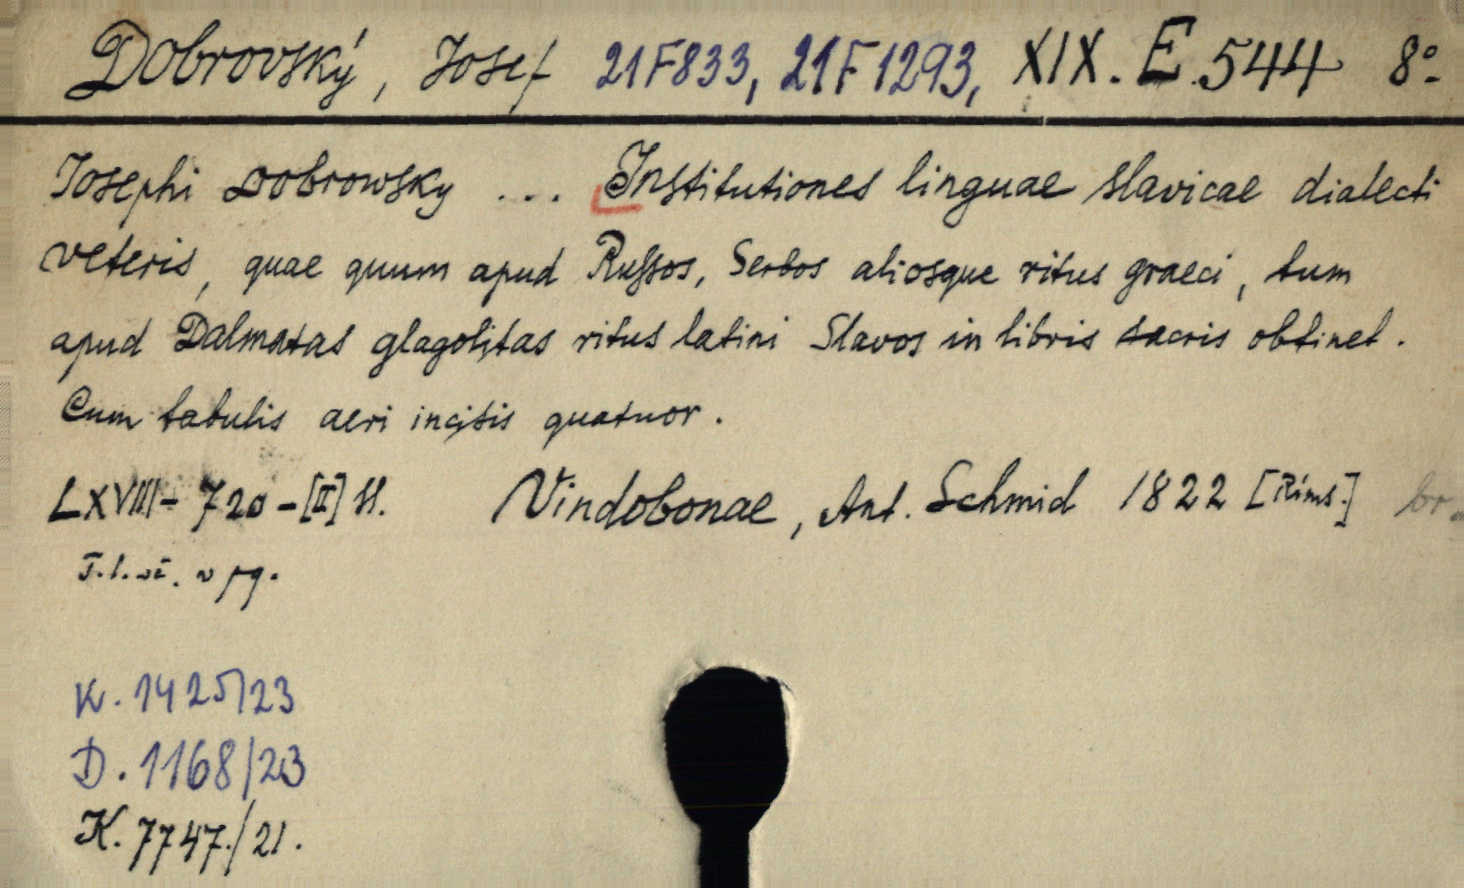 Dobrovský, Josef 21F833, 21F1293, XIX. E. 544 8°
Josephi Dobrowsky ... Institutiones linguae slavicae dialecti
veteris, quae quum apud Russos, Serbos aliosque ritus graeci, tum
apud Dalmatas glagolitas ritus latini Slavos in libris sacris obtinet.
Cum tabulis aeri incisis quatuor.
LXVIII - 720 - [II] st. Vindobonae, Ant. Schmid 1822 [Rims.] br.
T.l. v pg.
K. 1425/23
D. 1168/23
K. 7747./21.